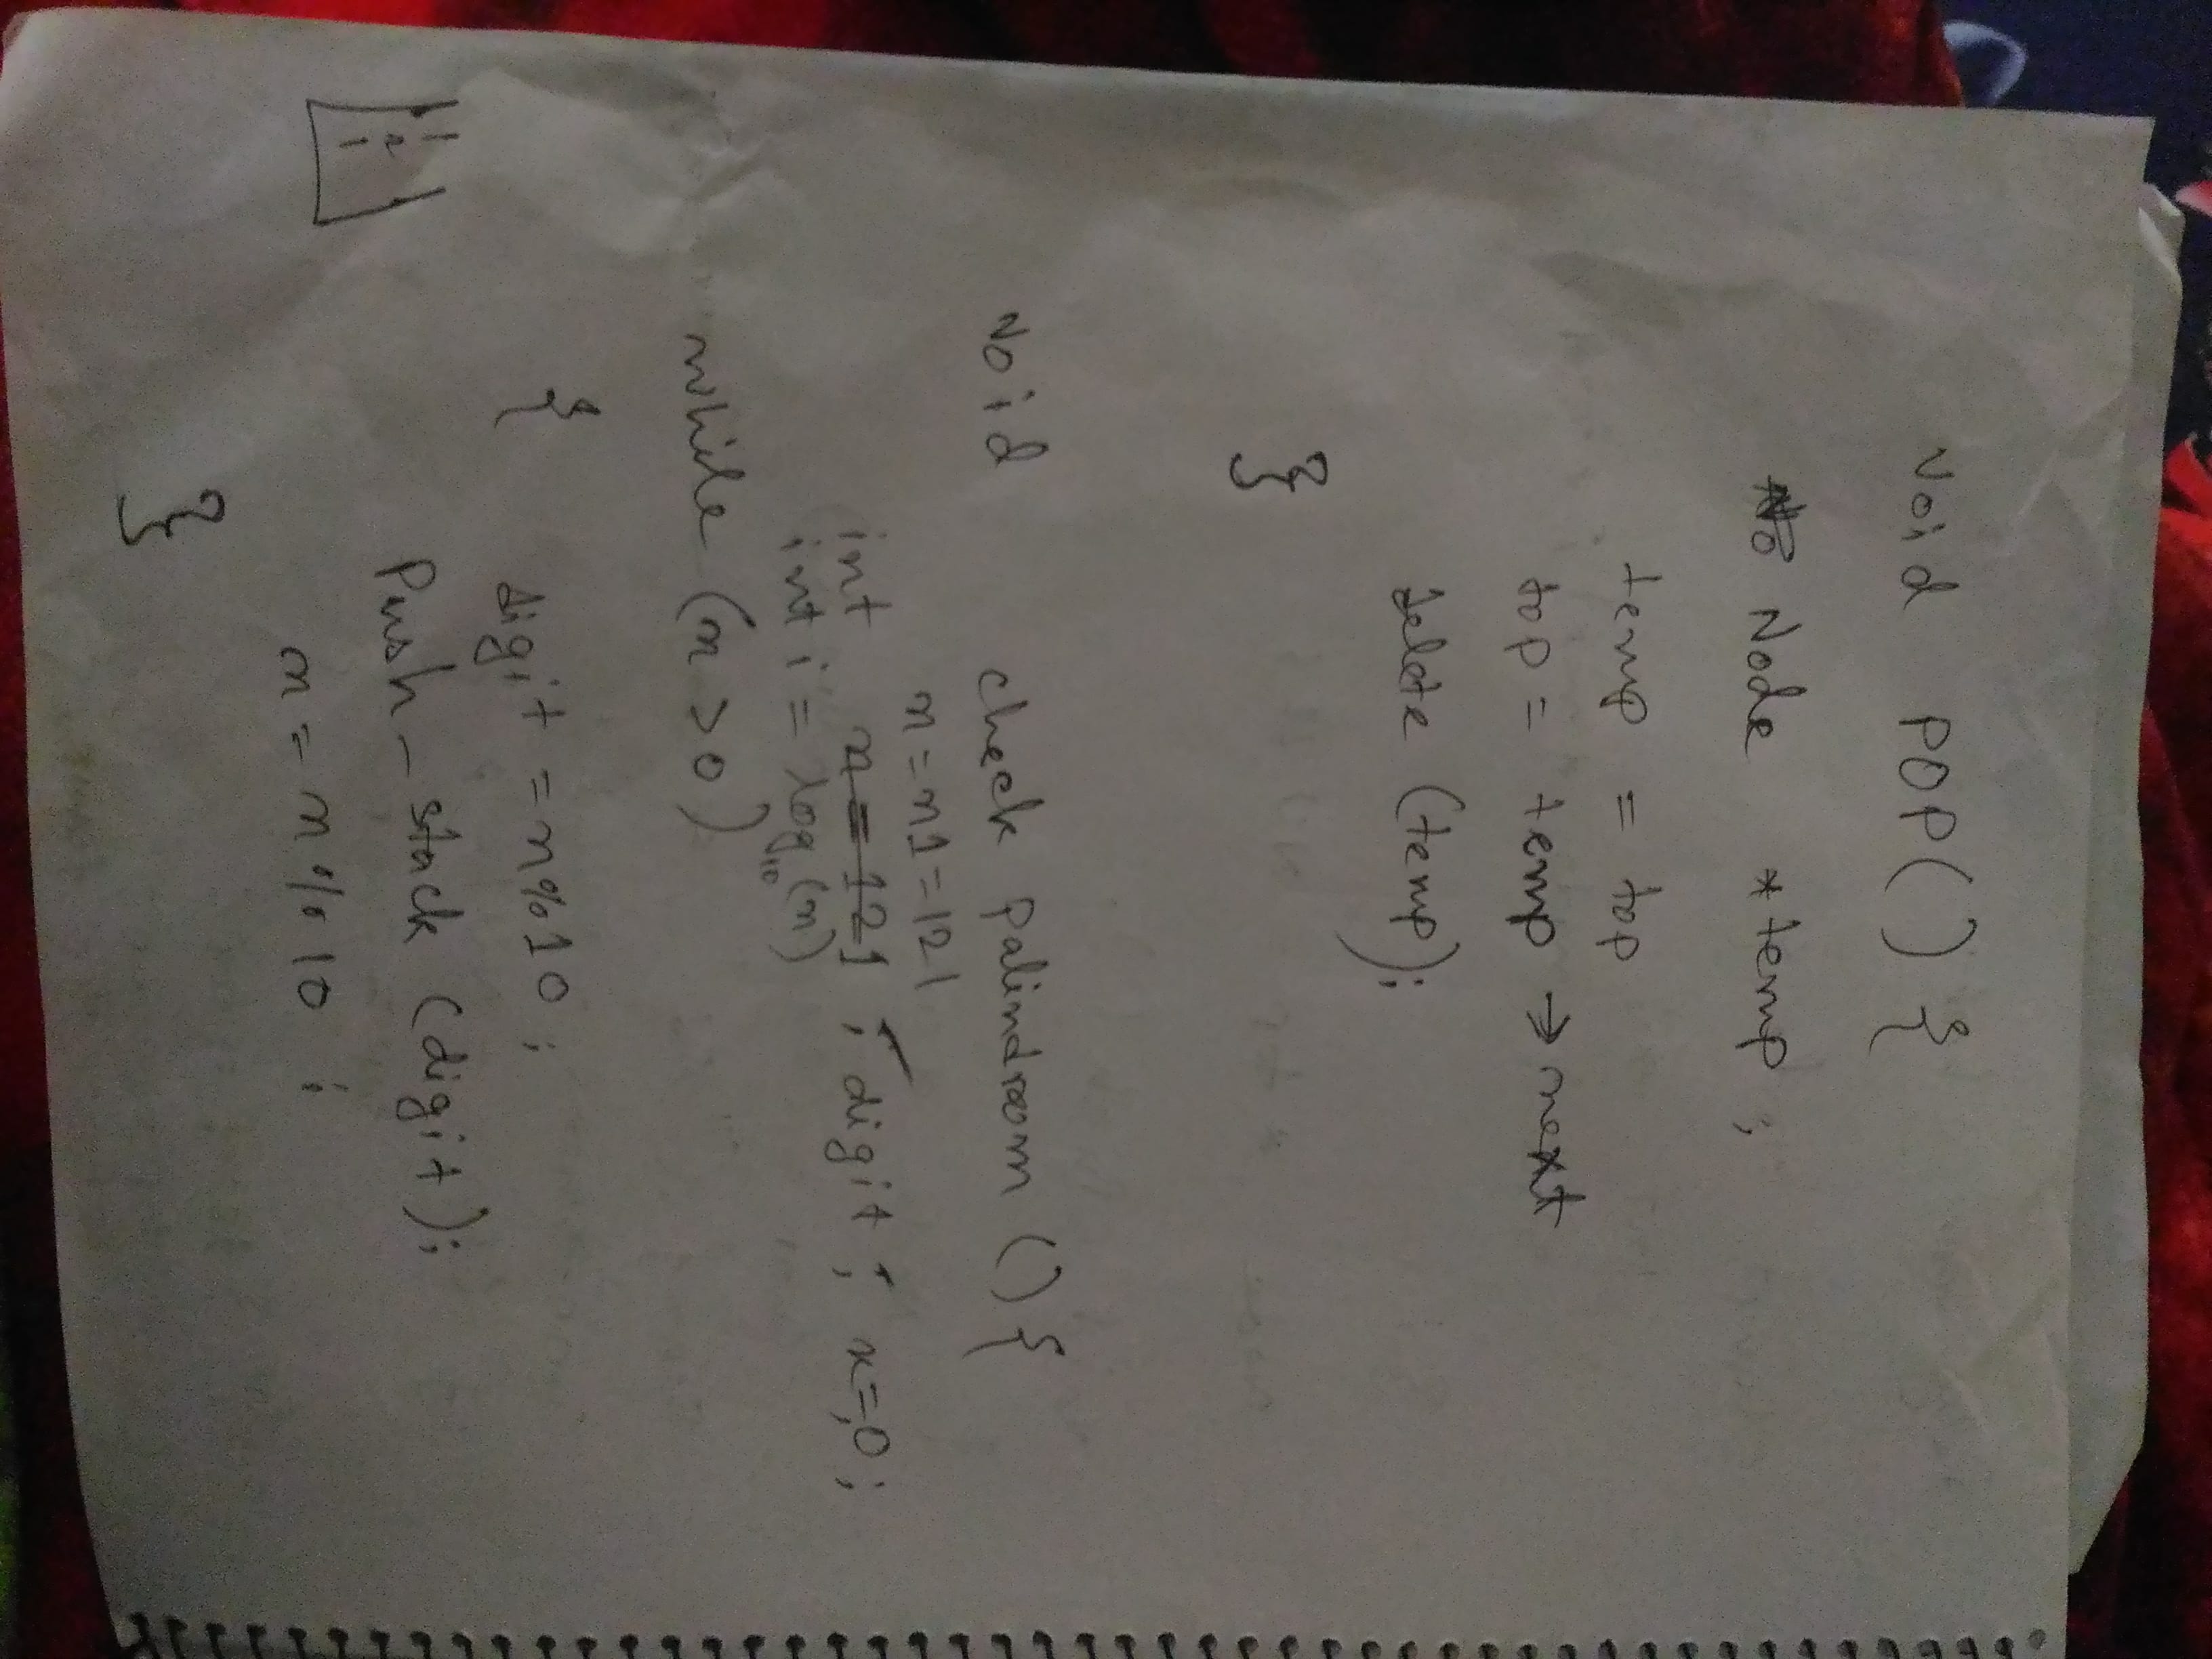 void POP() {
Node *temp ;
temp = top
top = temp → next
delete (temp);
}
void check palindroom () {
n = n1 = 121
int n = 121 ; digit ; x=,0 ;
int i = log10(n)
while (n > 0)
{ digit = n%10 ;
Push_stack (digit);
1
2
1
n = n%10 ;
}